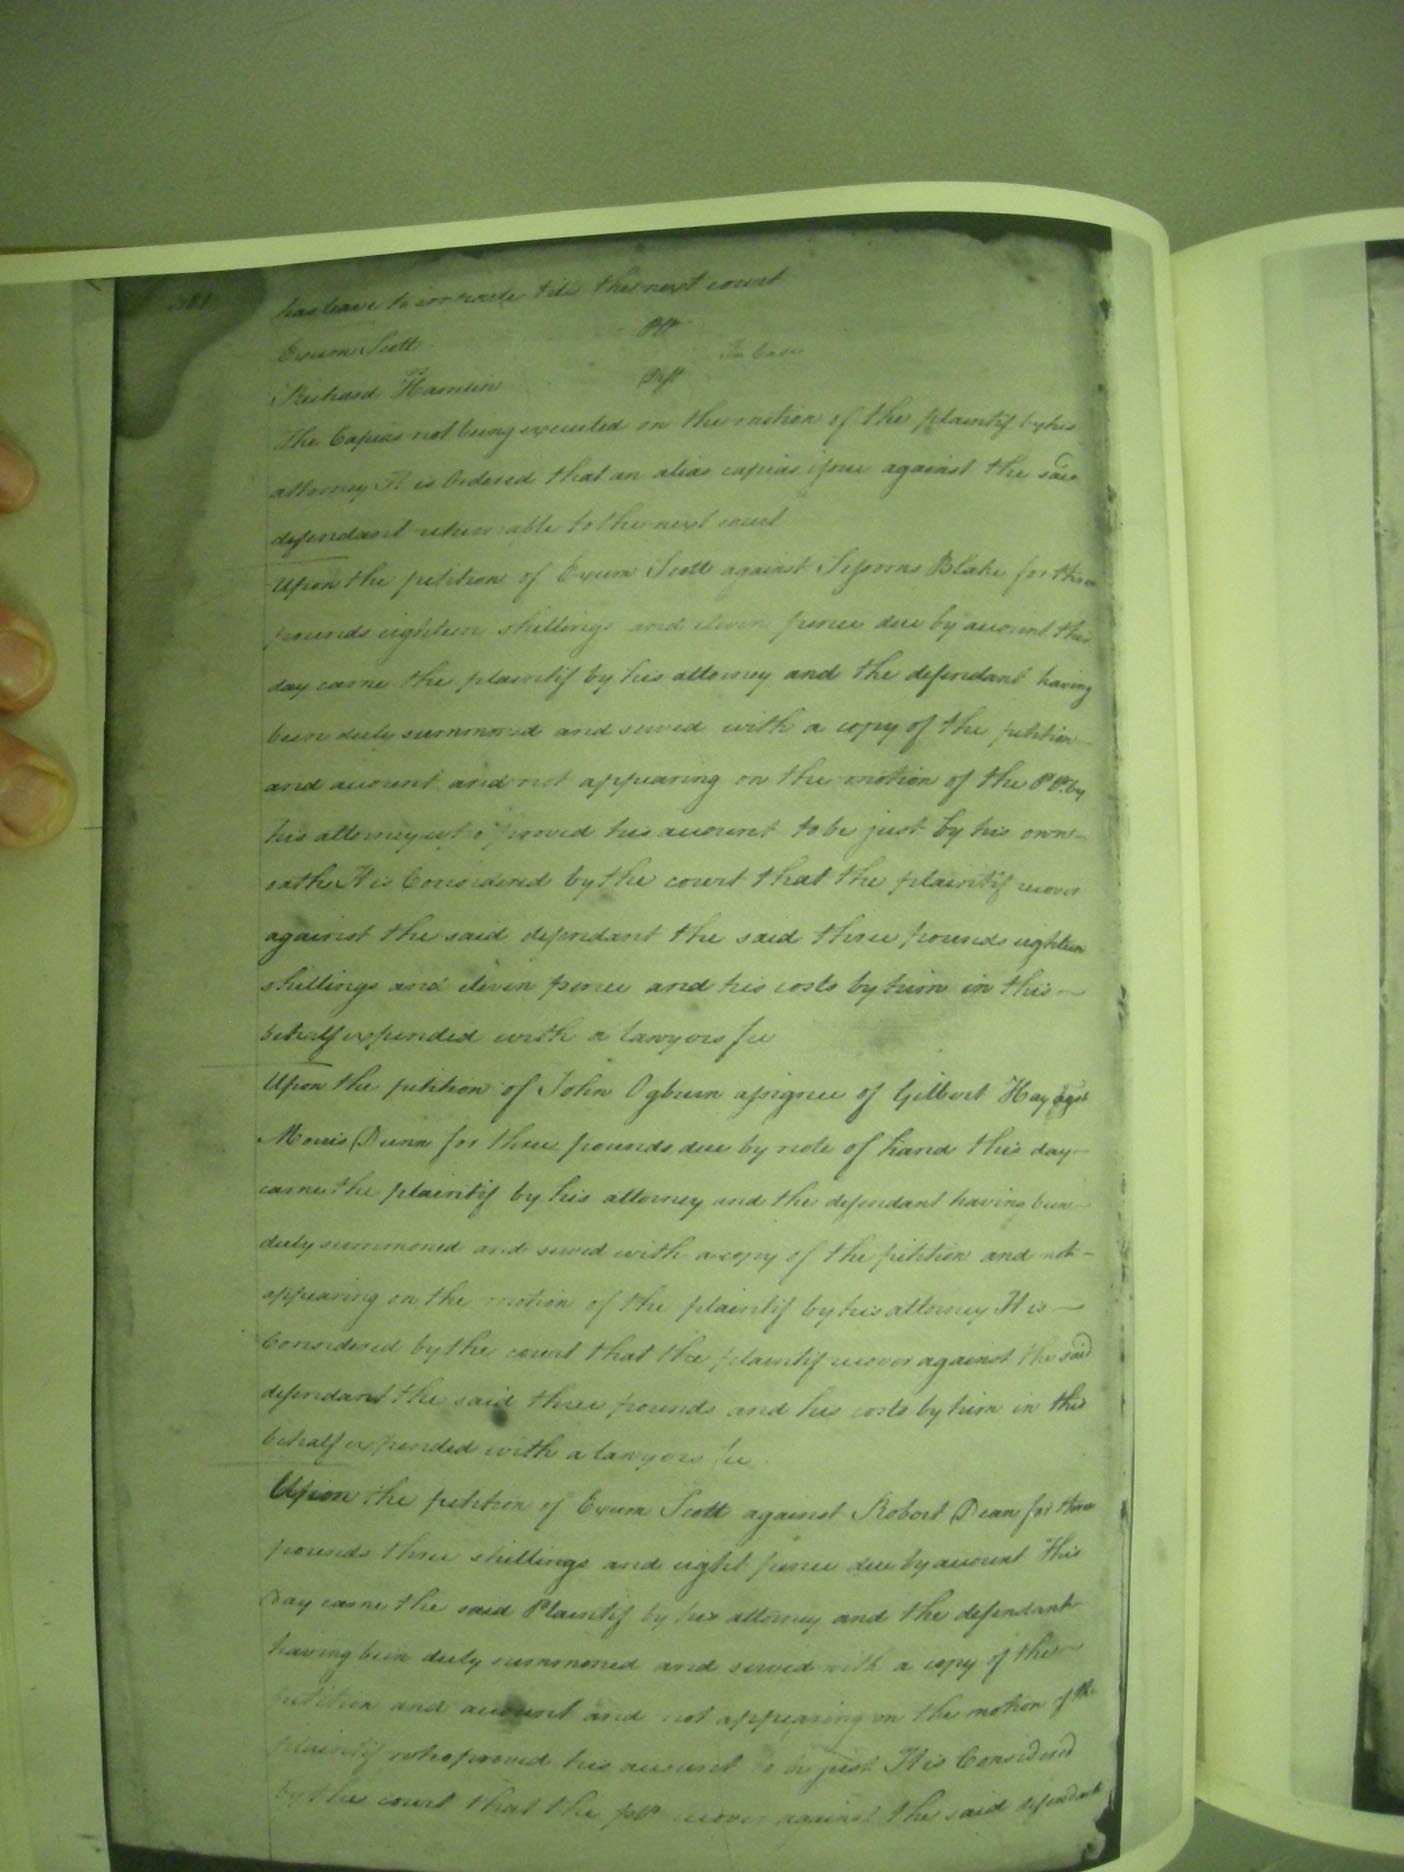 381
has leave to imparle till the next court
Exum Scott Plt
In Case
Richard Hamlin Deft
The Capias not being executed on the motion of the plaintif by his
attorney It is Ordered that an alias capias issue against the said
defendant returnable to the next court
Upon the petition of Exum Scott against Sessoms Blake for three
pounds eighteen shillings and eleven pence due by account this
day came the plaintif by his attorney and the defendant having
been duly summoned and served with a copy of the petition
and account and not appearing on the motion of the Plt. by
his attorney who proved his account to be just by his own
oath It is Considered by the court that the plaintif recover
against the said defendant the said three pounds eighteen
shillings and eleven pence and his costs by him in this
behalf expended with a lawyers fee
Upon the petition of John Ogburn assignee of Gilbert Hay agst
Morris Dunn for three pounds due by note of hand this day
came the plaintif by his attorney and the defendant having been
duly summoned and served with a copy of the petition and not
appearing on the motion of the plaintif by his attorney It is
Considered by the court that the plaintif recover against the said
defendant the said three pounds and his costs by him in this
behalf expended with a lawyers fee
Upon the petition of Exum Scott against Robert Dean for three
pounds three shillings and eight pence due by account This
Day came the said Plaintif by his attorney and the defendant
having been duly summoned and served with a copy of the
petition and account and not appearing on the motion of the
plaintif who proved his account to be just It is Considered
by the court that the plt recover against the said defendant